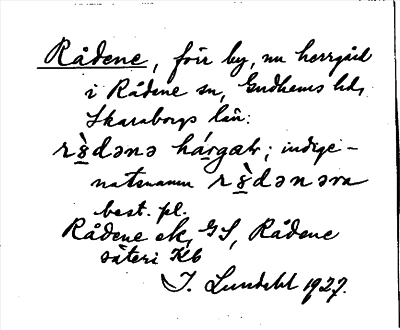 Rådene, förr by, nu herrgård
i Rådene sn, Gudhems hd,
Skaraborgs län:
rɷ̀dənə hárgaɽ; indige-
natsnamn rɷ̀dənəra
best. pl.
Rådene ek, GS, Rådene
säteri Kb
I. Lundahl 1927.